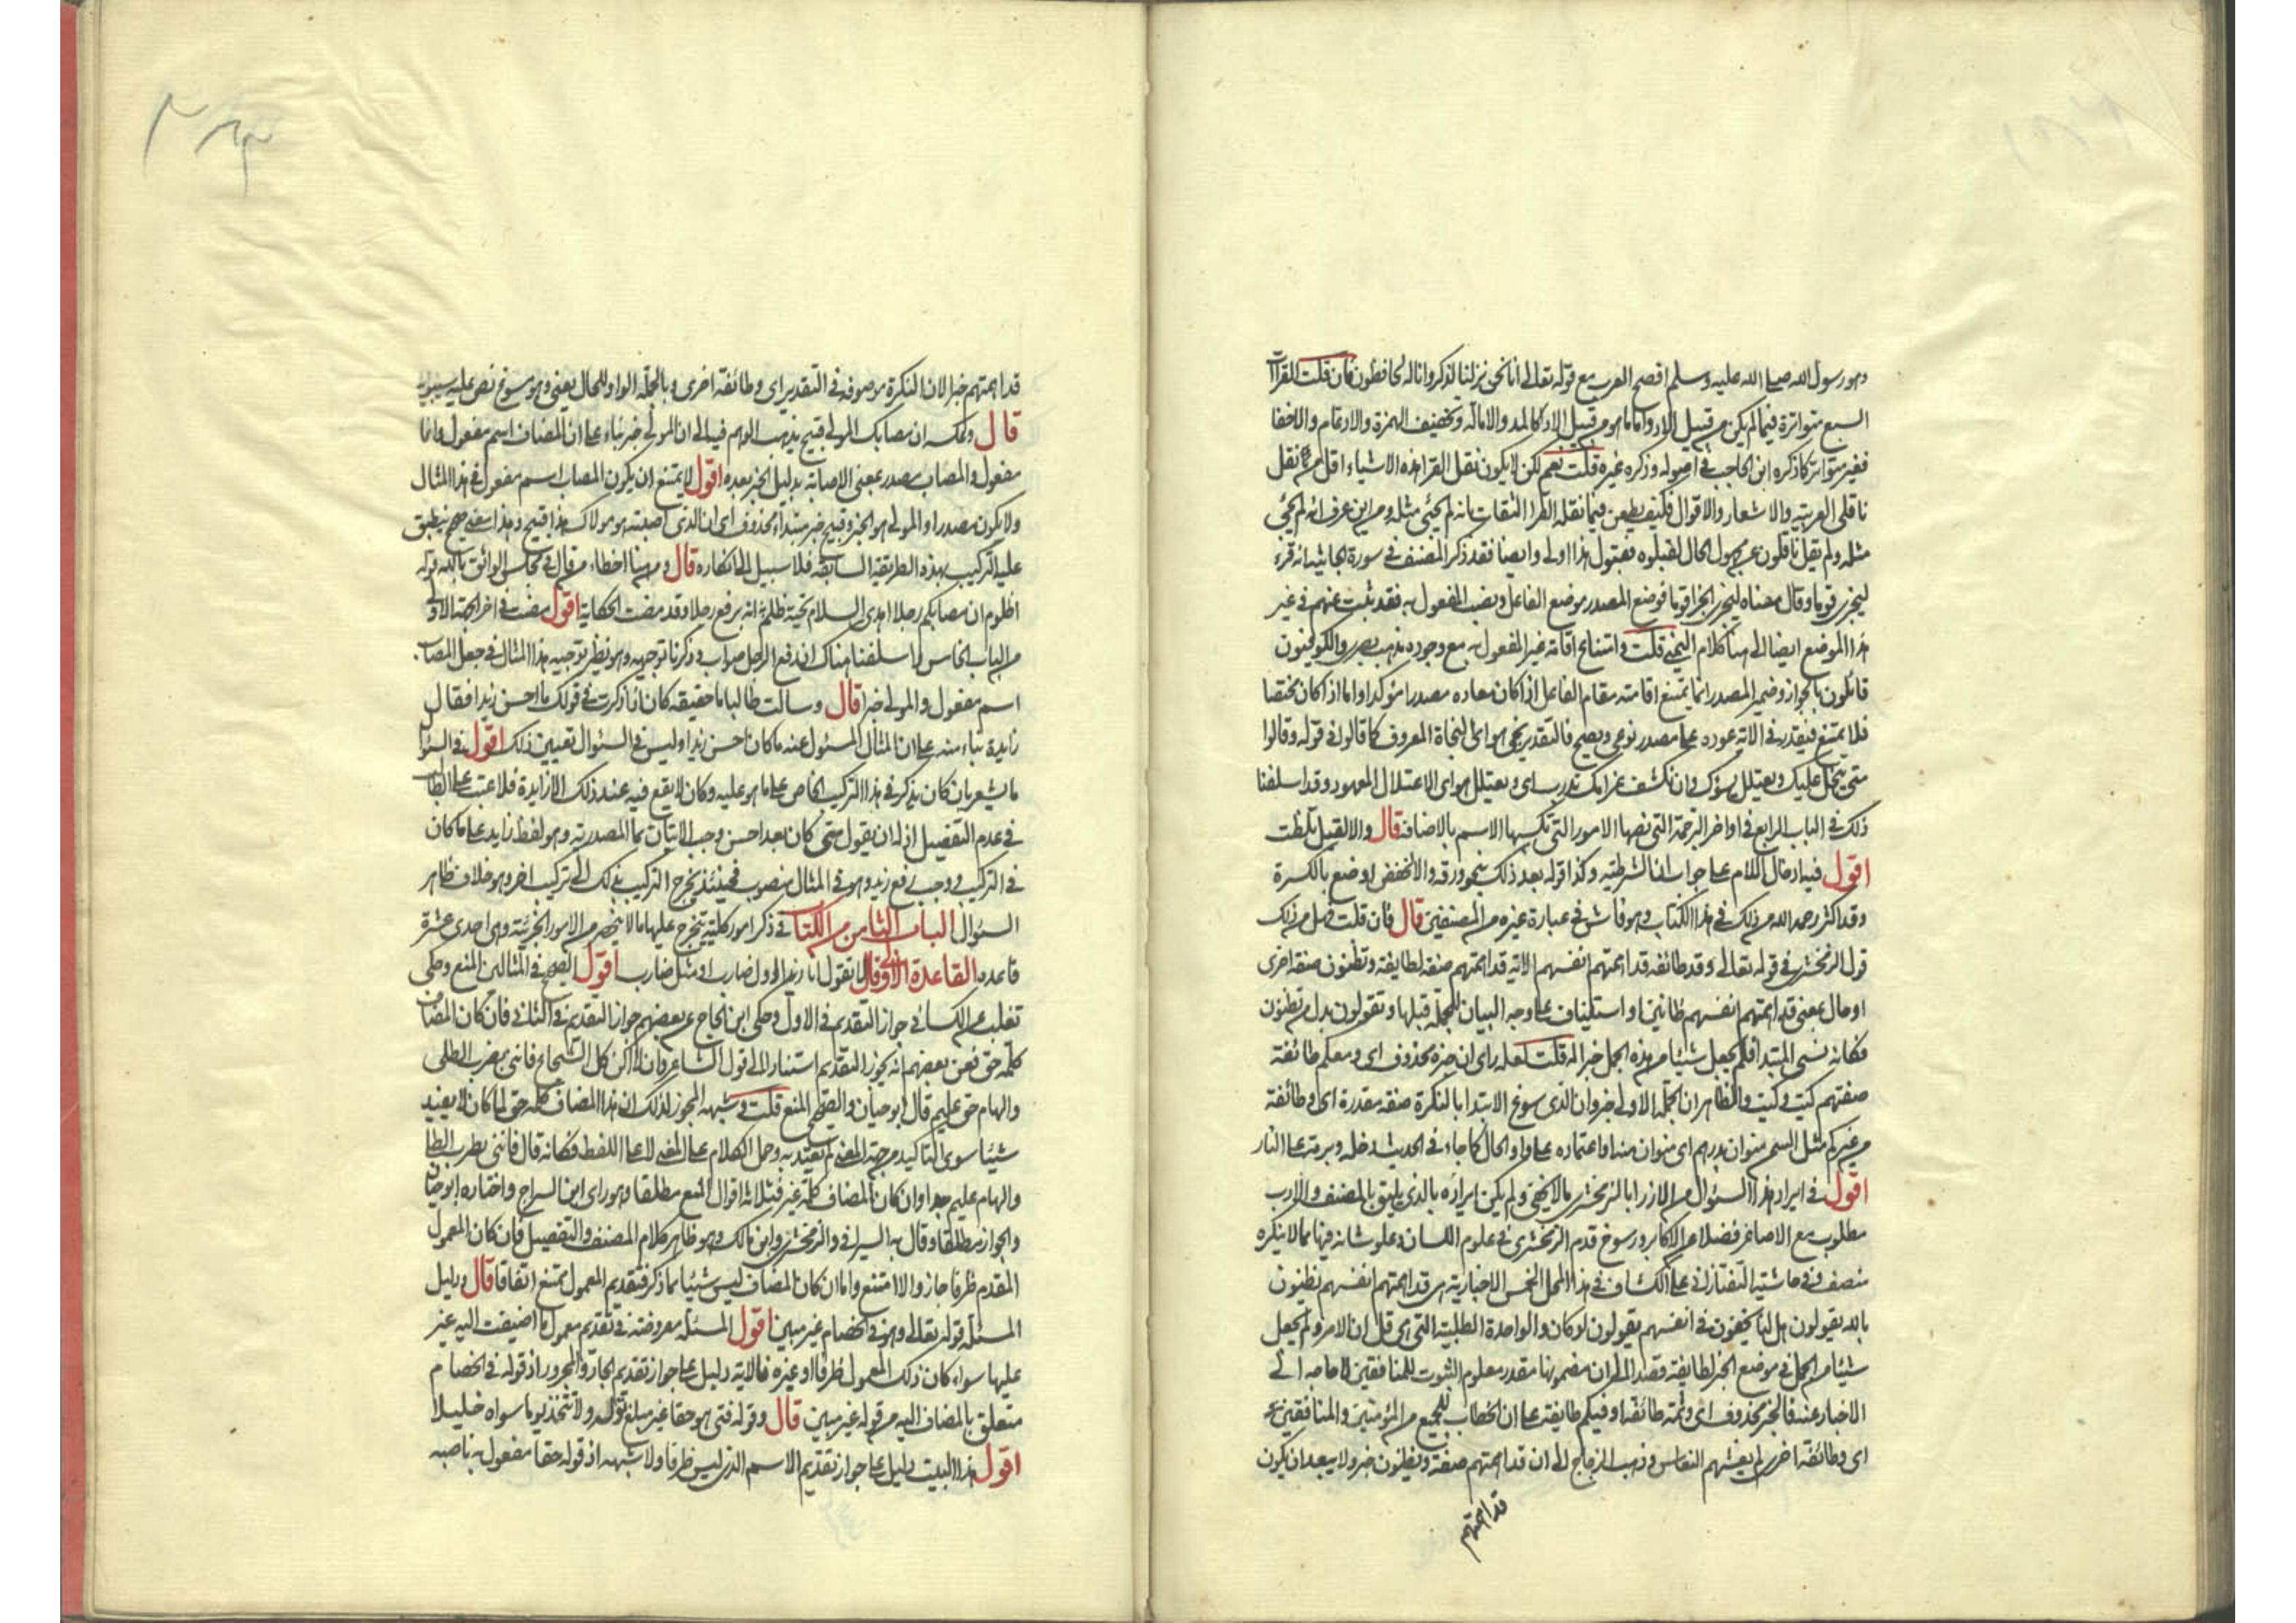 وهو رسول الله صلى الله عليه وسلم افصح العرب مع قوله تعالى انا نحن نزلنا الذكر وانا له لحافظون فان قلت القراآت
السبع متواترة فيما لم يكن من قبيل الاداء واما ما هو من قبيل الاداء كالمد والامالة وتخفيف الهمزة والادغام والاخفا
فغير متواتر كما ذكره ابن الحاجب في اصوله وذكره غيره قلت نعم لكن لا يكون نقل القرا هذه الاشياء اقل من نقل
ناقلي العربية والاشعار والاقوال فكيف يطعن فيما نقله القرا الثقات بانه لم يجئ مثله ومن اين عرف انه لم يجئ
مثله ولم يقل ناقلون عن مجهول الحال لقبلوه فقبول هذا اولى وايضا فقد ذكر المصنف في سورة الجاثية انه قرء
ليجزى قوما وقال معناه ليجزى الجزا قوما فوضع المصدر موضع الفاعل ونصب المفعول به فقد ثبت عنهم في غير
هذا الموضع ايضا الى هنا كلام اليمني قلت وامتناع اقامة غير المفعول به مع وجوده مذهب بصري والكوفيون
قائلون بالجواز وضمير المصدر انما يمتنع اقامته مقام الفاعل اذا كان معاده مصدرا مؤكدا واما اذا كان مختصا
فلا يمتنع فيقدر في الاية عوده على مصدر نوعي ويصح فالتقدير نجي هو اي النجاة المعروف كما قالوا في قوله وقالوا
متى يبخل عليك ويعتلل يسؤك وان تكشف غرامك تدرب اي ويعتلل هو اي الاعتلال المعهود وقد اسلفنا
ذلك في الباب الرابع في اواخر الترجمة التي نصها الامور التي تكسبها الاسم بالاضافة قال والا لقيل تلظت
اقول فيه ادخال اللام على جواب ان الشرطية وكذا قوله بعد ذلك بنحو ورقة والا لخفض اوضع بالكسرة
وقد اكثر رحمه الله من ذلك في هذا الكتاب وهو فاش في عبارة غيره من المصنفين قال فان قلت فهل من ذلك
قول الزمخشري في قوله تعالى وقد طائفة قد اهمتهم انفسهم الاية قد اهمتهم صفة لطايفة وتظنون صفة اخرى
او حال بمعنى قد اهمتهم انفسهم ظانين او استيناف على وجه البيان للجملة قبلها وتقولون بدل من تظنون
فكانه نسي المبتدا فلم يجعل شيئا من هذه الجمل خبرا له قلت لعله راى ان خبره محذوف اي ومعكم طائفة
صفتهم كيت وكيت والظاهر ان الجملة الاولى خبر وان الذي سوغ الابتدا بالنكرة صفة مقدرة اي وطائفة
من غيركم مثل السمن منوان بدرهم اي منوان منه او اعتماده على واو الحال كما جاء في الحديث دخل وبرمة على النار
اقول في ايراد هذا السؤال من الازراء بالزمخشري ما لا يخفى ولم يكن ايراده بالذي يليق بالمصنف والادب
مطلوب مع الاصاغر فضلا عن الاكابر ورسوخ قدم الزمخشري في علوم اللسان وعلو شانه فيها مما لا ينكره
منصف وفي حاشية التفتازاني على الكشاف في هذا المحل الخمس الاخبارية هي قد اهمتهم انفسهم يظنون
بالله يقولون هل لنا يخفون في انفسهم يقولون لو كان والواحدة الطلبية التي هي قل ان الامر ولم يجعل
شيئا من الجمل في موضع الخبر لطايفة قصدا الى ان مضمونها مقدر معلوم الثبوت للمنافقين لا حاجة الى
الاخبار عنه فالخبر محذوف اي وثمة طائفة او فيكم طايفة على ان الخطاب للجميع من المؤمنين والمنافقين
اي وطائفة اخرى لم يغشهم النعاس وذهب الزجاج الى ان قد اهمتهم صفة ويظنون خبر ولا يبعد ان يكون
قد اهمتهم
قد اهمتهم خبرا لان النكرة موصوفة في التقدير اي وطائفة اخرى وبالجملة الواو للحال يعني وهو مسوغ نص عليه سيبويه
قال وعكسه ان مصابك المولى قبيح يذهب الوهم فيه الى ان المولى خبر بناء على ان المصاب اسم مفعول وانما
مفعول والمصاب مصدر بمعنى الاصابة بدليل الخبر بعده اقول لا يمتنع ان يكون المصاب اسم مفعول في هذا المثال
ولا يكون مصدرا والمولى هو الخبر وقبيح خبر مبتدا محذوف اي ان الذي اصبته هو مولاك هذا قبيح وهذا معنى صحيح ينطبق
عليه التركيب بهذه الطريقة السابقة فلا سبيل الى انكاره قال ومن هنا اخطاء من قال في مجلس الواثق بالله قوله
اظلوم ان مصابكم رجلا اهدى السلام تحية ظلم انه برفع رجلا وقد مضت الحكاية اقول مضت في اخر الجهة الاولى
من الباب الخامس واسلفنا هناك ان رفع الرجل صواب وذكرنا توجيهه وهو نظير توجيه هذا المثال في جعل المصاب
اسم مفعول والمولى خبرا قال وسالت طالبا ما حقيقة كان اذا ذكرت في قولك ما احسن زيدا فقال
زايدة بناء منه على ان المثال المسئول عنه ما كان احسن زيدا وليس في السؤال تعيين ذلك اقول في السؤا
ما يشعر بان كان يذكر في هذا التركيب الخاص على ما هو عليه وكان لا يقع فيه عند ذلك الا زايدة فلا عتب على الطا
في عدم التفصيل اذ له ان يقول متى كان بعد احسن وجب الاتيان بما المصدرية وهو لفظ زايد على ما كان
في التركيب ووجب رفع زيد وهو في المثال منصوب فحينئذ يخرج التركيب بذلك الى تركيب اخر وهو خلاف ظاهر
السؤال الباب الثامن من الكتاب في ذكر امور كلية يتخرج عليها ما لا ينحصر من الامور الجزئية وهي احدى عشرة
قاعدة القاعدة الاولى قال انا نقول انا زيدا اول ضارب او مثل ضارب اقول الصحيح في المثالين المنع وحكى
ثعلب عن الكسائي جواز التقديم في الاول وحكى ابن الحاج عن بعضهم جواز التقديم في الثاني فان كان المضاف
كلمة حق فعن بعضهم انه يجوز التقديم استنادا الى قول الشاعر وان لا اكن كل الشجاع فانني بضرب الطلى
والهام حق عليم قال ابو حيان والصحيح المنع قلت وشبهه المجوز لذلك ان هذا المضاف كلمة حق لما كان لا يفيد
شيئا سوى التاكيد من جهة المعنى لم يعتد به وحمل الكلام على المعنى لا على اللفظ فكانه قال فانني بضرب الطلا
والهام عليم جدا وان كان المضاف كلمة غير فثلاثة اقوال المنع مطلقا وهو راى ابن السراج واختاره ابو حيان
والجواز مطلقا وقال به السيرافي والزمخشري وابن مالك وهو ظاهر كلام المصنف والتفصيل فان كان المعمول
المقدم ظرفا جاز والا امتنع واما ان كان المضاف ليس شيئا مما ذكر فتقديم المعمول يمتنع اتفاقا قال ودليل
المسئلة قوله تعالى وهو في الخصام غير مبين اقول المسئلة معروضة في تقديم معمول ما اضيفت اليه غير
عليها سواء كان ذلك المعمول ظرفا او غيره فالاية دليل على جواز تقديم الجار والمجرور اذ قوله في الخصام
متعلق بالمضاف اليه من قوله غير مبين قال وقوله فتى هو حقا غير مبلغ تؤلد ولا تتخذ يوما سواه خليلا
اقول هذا البيت دليل على جواز تقديم الاسم الذي ليس ظرفا ولا شبهه اذ قوله حقا مفعول به ناصبه